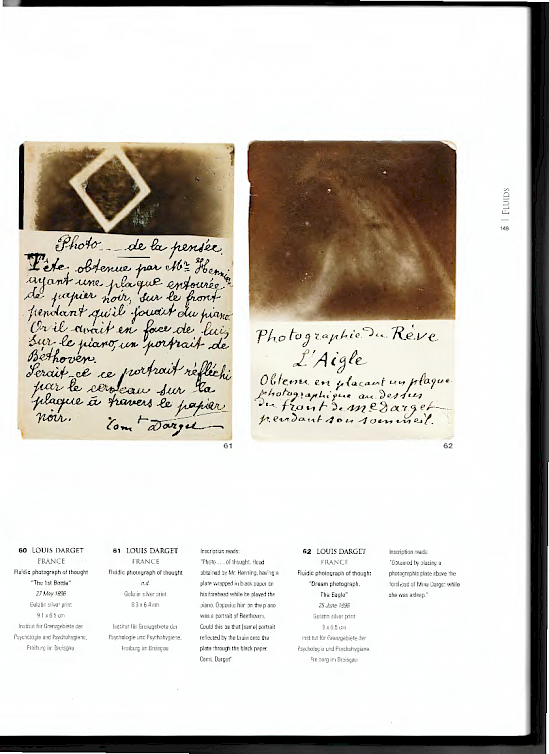 Photo ... de la pensée.
Tête obtenue par Mr Henning
ayant une plaque entourée
de papier noir, sur le front
pendant qu'il jouait du piano
Or il avait en face de lui,
sur le piano, un portrait de
Béthoven.
Serait-ce ce portrait réfléchi
par le cerveau sur la
plaque à travers le papier
noir. Comt Darget
61
Photographie du Rêve
L'Aigle
Obtenu en plaçant un plaque
photographique au dessus
du front de Me Darget
pendant son sommeil.
62
| FLUIDS
149
60 LOUIS DARGET
FRANCE
Fluidic photograph of thought
"The 1st Bottle"
27 May 1896
Gelatin silver print
9.1 x 6.5 cm
Institut für Grenzgebiete der
Psychologie und Psychohygiene,
Freiburg im Breisgau
61 LOUIS DARGET
FRANCE
Fluidic photograph of thought
n.d.
Gelatin silver print
9.3 x 6.4 cm
Institut für Grenzgebiete der
Psychologie und Psychohygiene,
Freiburg im Breisgau
Inscription reads:
"Photo . . . of thought. Head
obtained by Mr. Henning, having a
plate wrapped in black paper on
his forehead while he played the
piano. Opposite him on the piano
was a portrait of Beethoven.
Could this be that [same] portrait
reflected by the brain onto the
plate through the black paper.
Comt. Darget"
62 LOUIS DARGET
FRANCE
Fluidic photograph of thought
"Dream photograph.
The Eagle"
25 June 1896
Gelatin silver print
9 x 6.5 cm
Institut für Grenzgebiete der
Psychologie und Psychohygiene,
Freiburg im Breisgau
Inscription reads:
"Obtained by placing a
photographic plate above the
forehead of Mme Darget while
she was asleep."